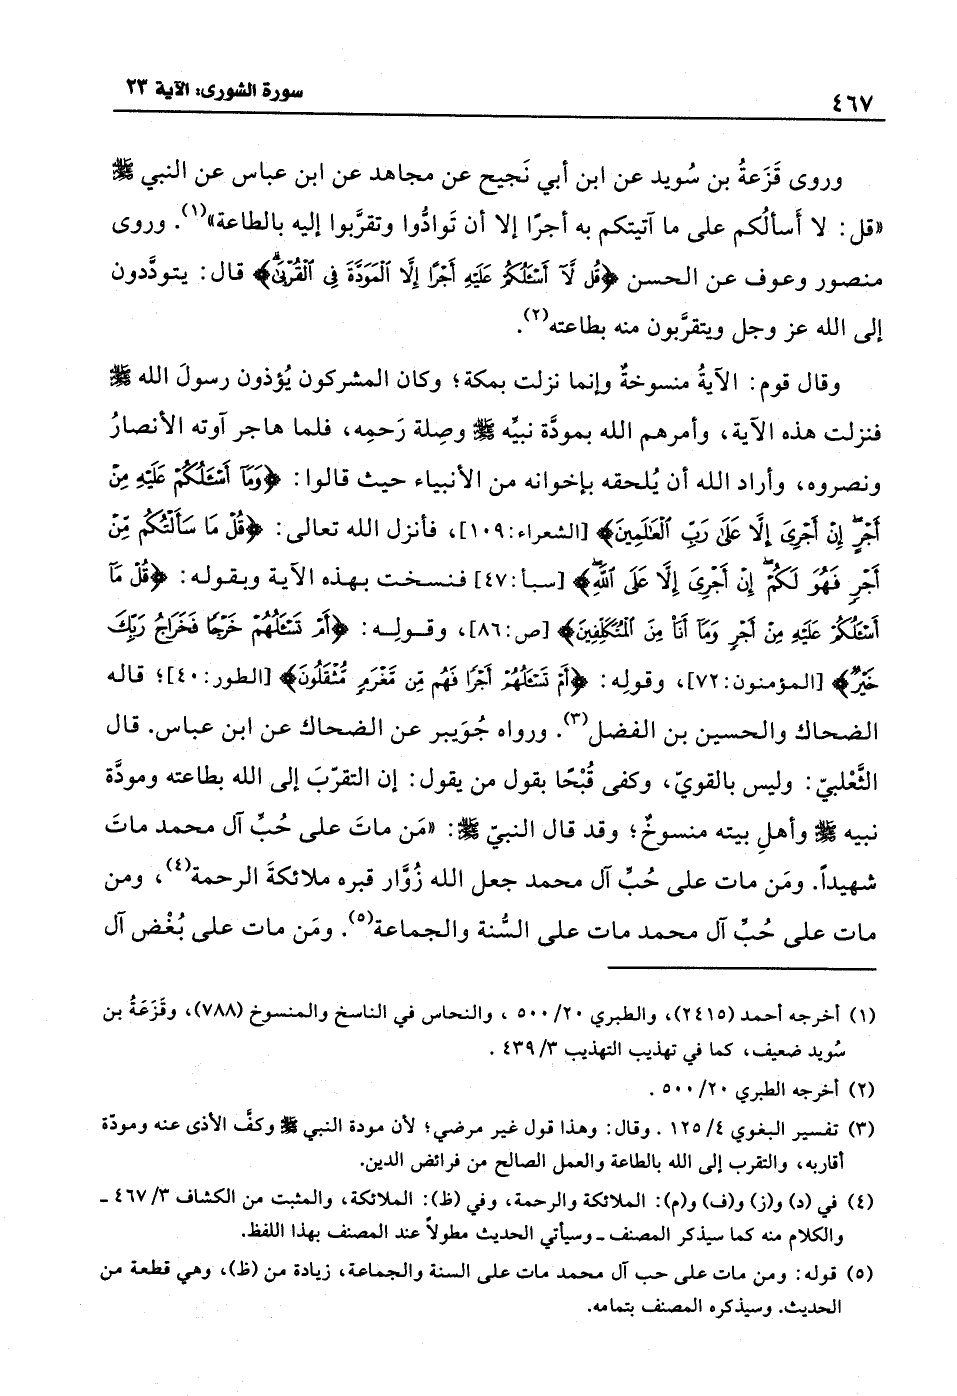 سورة الشورى: الآية ٢٣
٤٦٧
وروى قَزَعةُ بن سُويد عن ابن أبي نَجيح عن مجاهد عن ابن عباس عن النبي ﷺ
«قل: لا أَسألُكم على ما آتيتكم به أجرًا إلا أن تَوادُّوا وتقرَّبوا إليه بالطاعة»(١). وروى
منصور وعوف عن الحسن ﴿قُل لَّا أَسْـَٔلُكُمْ عَلَيْهِ أَجْرًا إِلَّا الْمَوَدَّةَ فِي الْقُرْبَىٰ﴾ قال: يتودَّدون
إلى الله عز وجل ويتقرَّبون منه بطاعته(٢).
وقال قوم: الآيةُ منسوخةٌ وإنما نزلت بمكة؛ وكان المشركون يُؤذون رسولَ الله ﷺ
فنزلت هذه الآية، وأمرهم الله بمودَّة نبيِّه ﷺ وصِلة رَحمِه، فلما هاجر آوته الأنصارُ
ونصروه، وأراد الله أن يُلحقه بإخوانه من الأنبياء حيث قالوا: ﴿وَمَا أَسْـَٔلُكُمْ عَلَيْهِ مِنْ
أَجْرٍ إِنْ أَجْرِيَ إِلَّا عَلَىٰ رَبِّ الْعَالَمِينَ﴾ [الشعراء:١٠٩]، فأنزل الله تعالى: ﴿قُلْ مَا سَأَلْتُكُم مِّنْ
أَجْرٍ فَهُوَ لَكُمْ إِنْ أَجْرِيَ إِلَّا عَلَى اللَّهِ﴾ [سبأ:٤٧] فنسخت بهذه الآية وبقوله: ﴿قُلْ مَا
أَسْـَٔلُكُمْ عَلَيْهِ مِنْ أَجْرٍ وَمَا أَنَا مِنَ الْمُتَكَلِّفِينَ﴾ [ص:٨٦]، وقولِه: ﴿أَمْ تَسْـَٔلُهُمْ خَرْجًا فَخَرَاجُ رَبِّكَ
خَيْرٌ﴾ [المؤمنون:٧٢]، وقولِه: ﴿أَمْ تَسْـَٔلُهُمْ أَجْرًا فَهُم مِّن مَّغْرَمٍ مُّثْقَلُونَ﴾ [الطور:٤٠]؛ قاله
الضحاك والحسين بن الفضل(٣). ورواه جُوَيبر عن الضحاك عن ابن عباس. قال
الثَّعْلبيّ: وليس بالقويّ، وكفى قُبْحًا بقول من يقول: إن التقرّبَ إلى الله بطاعته ومودَّة
نبيه ﷺ وأهلِ بيته منسوخٌ؛ وقد قال النبيّ ﷺ: «مَن ماتَ على حُبِّ آل محمد ماتَ
شهيداً. ومَن مات على حُبِّ آل محمد جعل الله زُوَّار قبره ملائكةَ الرحمة(٤)، ومن
مات على حُبِّ آل محمد مات على السُّنة والجماعة(٥). ومَن مات على بُغْض آل
(١) أخرجه أحمد (٢٤١٥)، والطبري ٢٠/ ٥٠٠ ، والنحاس في الناسخ والمنسوخ (٧٨٨)، وقَزَعَةُ بن
سُويد ضعيف، كما في تهذيب التهذيب ٣/ ٤٣٩ .
(٢) أخرجه الطبري ٢٠/ ٥٠٠ .
(٣) تفسير البغوي ٤/ ١٢٥ . وقال: وهذا قول غير مرضي؛ لأن مودة النبي ﷺ وكفَّ الأذى عنه ومودّة
أقاربه، والتقرب إلى الله بالطاعة والعمل الصالح من فرائض الدين.
(٤) في (د) و(ز) و(ف) و(م): الملائكة والرحمة، وفي (ظ): الملائكة، والمثبت من الكشاف ٣/ ٤٦٧ ـ
والكلام منه كما سيذكر المصنف ـ وسيأتي الحديث مطولاً عند المصنف بهذا اللفظ.
(٥) قوله: ومن مات على حب آل محمد مات على السنة والجماعة، زيادة من (ظ)، وهي قطعة من
الحديث. وسيذكره المصنف بتمامه.